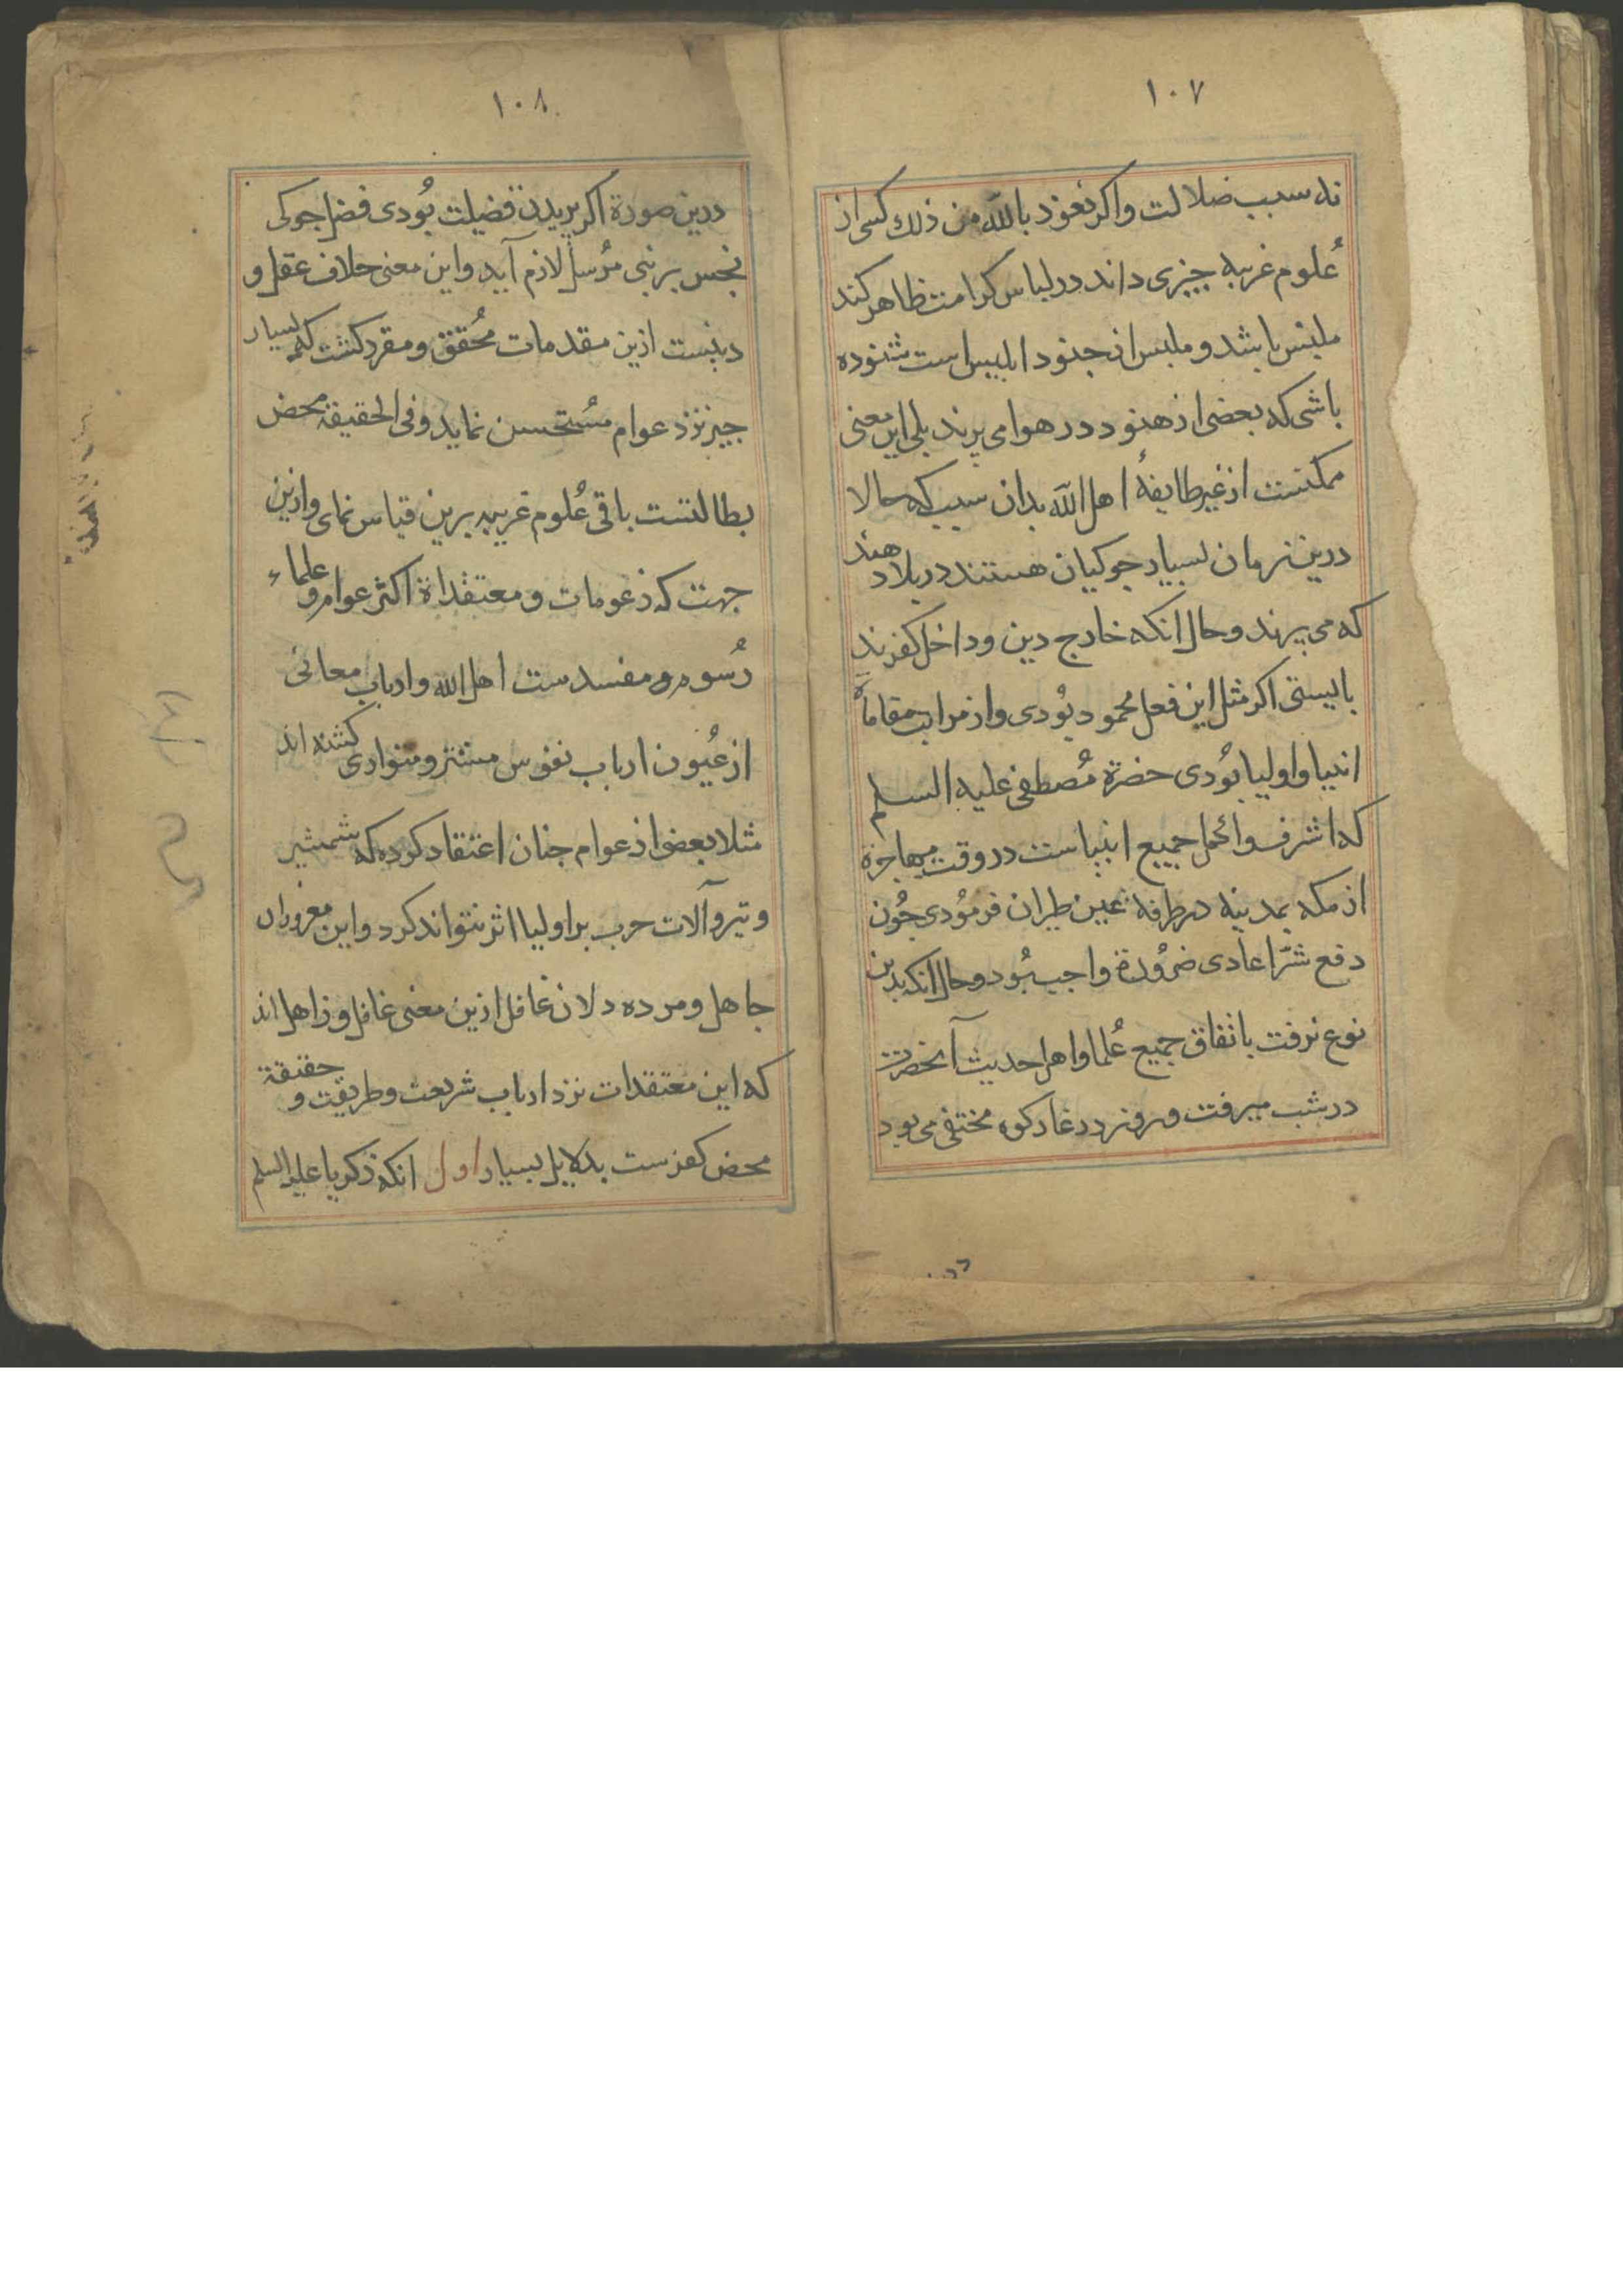 ١٠٧
نه سبب ضلالت واکر نعوذ بالله من ذلك کسی از
عُلوم غریبه چیزی داند در لباس کرامت ظاهر کند
ملبّس باشد و ملبس از جنود ابلیس است شنوده
باشی که بعضی از هنود در هوا می پرند بلی این معنی
ممکنست از غیر طایفهٔ اهل الله بدان سبب که حالا
درین زمان بسیار جوکیان هستند در بلاد هند
که می پرند و حال انکه خارج دین و داخل کفرند
بایستی اکر مثل این فعل محمود بُودی و از مراتب مقاماة
انبیا و اولیا بُودی حضرة مُصطفی علیه السلم
که اشرف و اکمل جمیع انبیاست در وقت مهاجرة
از مکه بمدینه در طرفة عین طیران فرمُودی چُون
دفع شرّ اعادی ضرُورة واجب بُود و حال انکه بدین
نوع نرفت باتفاق جمیع عُلما و اهل حدیث آنحضرت
در شب میرفت و روز در غار کوه مختفی می بود
درین
١٠٨
درین صورة اکر پریدن فضیلت بُودی فضل جوکی
نجس بر نبی مُرسل لازم آید و این معنی خلاف عقل و
دینست ازین مقدمات مُحقق و مقرر کشت که بسیار
چیز نزد عوام مُستحسن نماید و فی الحقیقة محض
بطالتست باقی عُلوم غریبه برین قیاس نمای و ازین
جهت که زعومات و معتقداة اکثر عوام و علماء
رُسوم و مفسدست اهل الله و ارباب معانی
از عُیون ارباب نفوس مستتر و متواری کشته اند
مثلا بعضی از عوام چنان اعتقاد کرده که شمشیر
و تیر و آلات حرب بر اولیا اثر نتواند کرد و این مغروران
جاهل و مرده دلان غافل ازین معنی غافل و ذاهل اند
که این معتقدات نزد ارباب شریعت و طریقت و حقیقة
محض کفرست بدلایل بسیار اول انکه زکریا علیه السلم